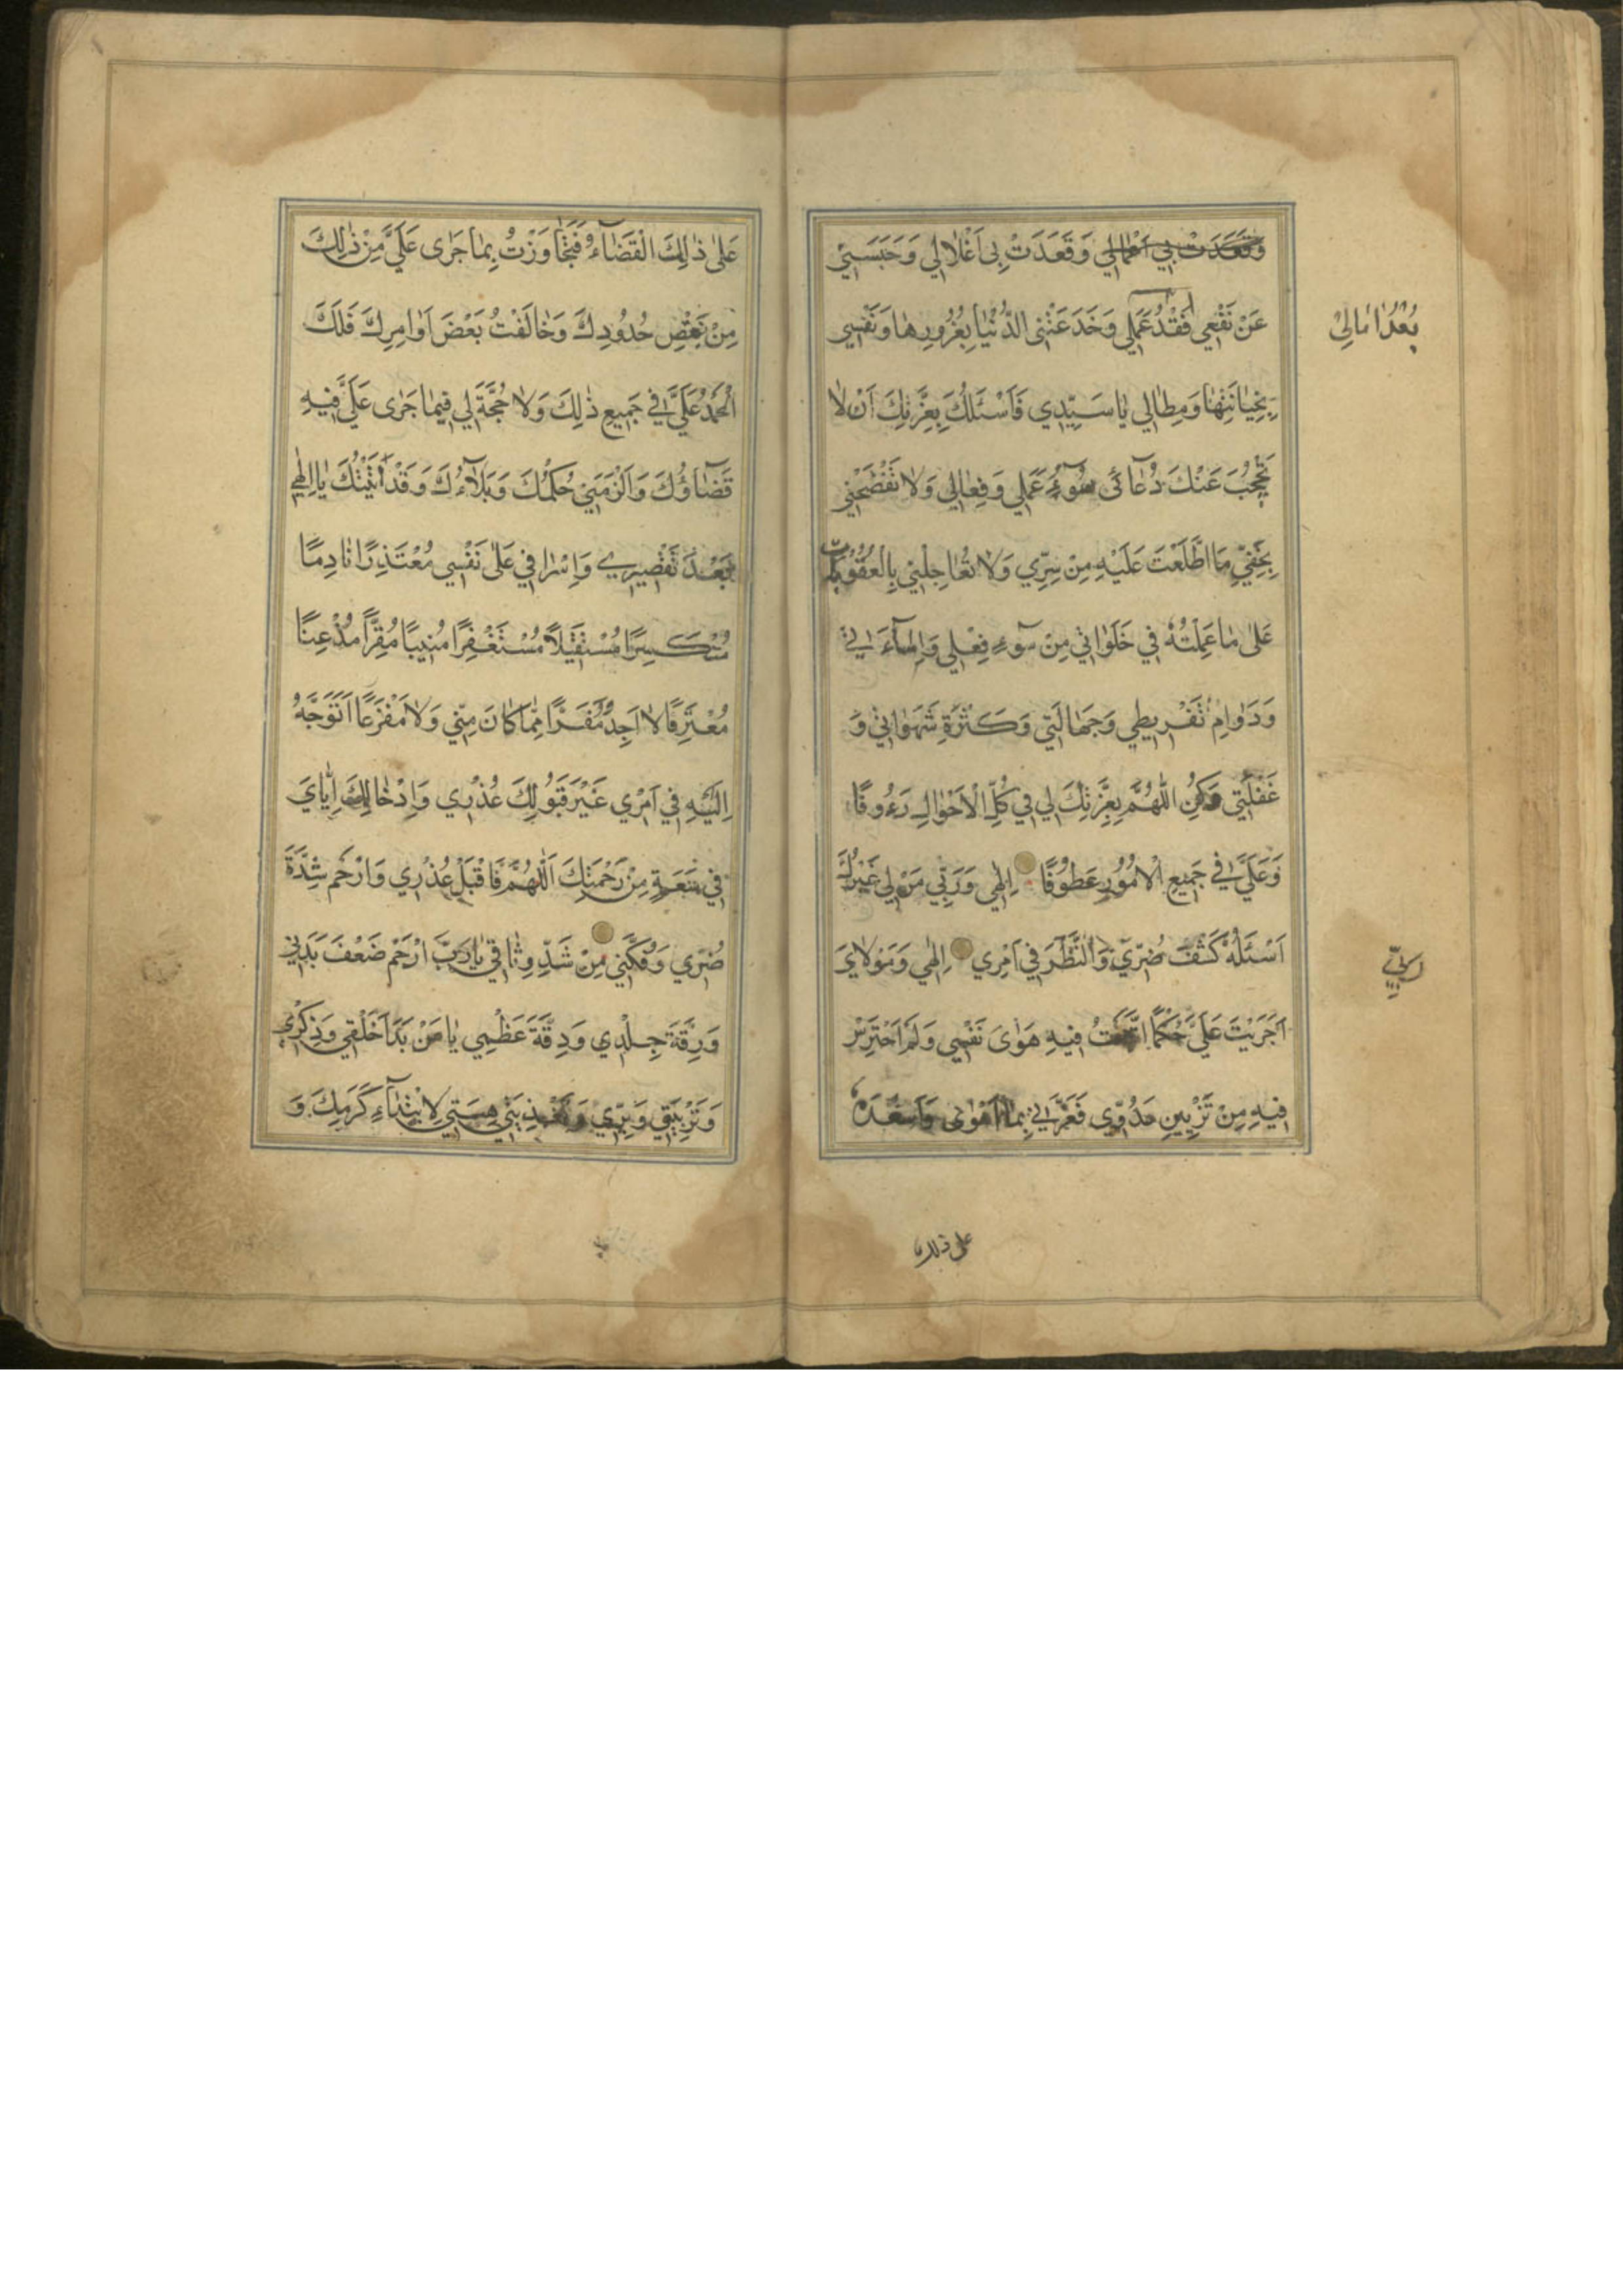 وَقَعَدَتْ بِي اَعْمَالِي وَقَعَدَتْ بِي اَغْلَالِي وَحَبَسَنِي
عَنْ نَفْعِي فَقْدُ عَمَلِي وَخَدَعَتْنِي الدُّنْيَا بِغُرُورِهَا وَنَفْسِي
بُعْدُ اٰمَالِيْ
بِخِيَانَتِهَا وَمِطَالِي يَا سَيِّدِي فَاَسْئَلُكَ بِعِزَّتِكَ اَنْ لَا
تَحْجُبَ عَنْكَ دُعَآئِي سُوٓءُ عَمَلِي وَفِعَالِي وَلَا تَفْضَحْنِي
بِخَفِيِّ مَا اطَّلَعْتَ عَلَيْهِ مِنْ سِرِّي وَلَا تُعَاجِلْنِي بِالْعُقُوبَةِ
عَلٰى مَا عَمِلْتُهُ فِي خَلَوَاتِي مِنْ سُوٓءِ فِعْلِي وَاِسَآءَتِي
وَدَوَامِ تَفْرِيطِي وَجَهَالَتِي وَكَثْرَةِ شَهَوَاتِي وَ
غَفْلَتِي وَكُنِ اللّٰهُمَّ بِعِزَّتِكَ لِي فِي كُلِّ الْاَحْوَالِ رَءُوفًا
وَعَلَيَّ فِي جَمِيعِ الْاُمُورِ عَطُوفًا اِلٰهِي وَرَبِّي مَنْ لِي غَيْرُكَ
اَسْئَلُهُ كَشْفَ ضُرِّي وَالنَّظَرَ فِي اَمْرِي اِلٰهِي وَمَوْلَايَ
اَجْرَيْتَ عَلَيَّ حُكْمًا اتَّبَعْتُ فِيهِ هَوٰى نَفْسِي وَلَمْ اَحْتَرِسْ
فِيهِ مِنْ تَزْيِينِ عَدُوِّي فَغَرَّنِي بِمَا اَهْوٰى وَاَسْعَدَهُ
على ذلك
عَلٰى ذٰلِكَ الْقَضَآءُ فَتَجَاوَزْتُ بِمَا جَرٰى عَلَيَّ مِنْ ذٰلِكَ
مِنْ نَقْضِ حُدُودِكَ وَخَالَفْتُ بَعْضَ اَوَامِرِكَ فَلَكَ
الْحَمْدُ عَلَيَّ فِي جَمِيعِ ذٰلِكَ وَلَا حُجَّةَ لِي فِيمَا جَرٰى عَلَيَّ فِيهِ
قَضَآؤُكَ وَاَلْزَمَنِي حُكْمُكَ وَبَلَآءُكَ وَقَدْ اَتَيْتُكَ يَا اِلٰهِي
بَعْدَ تَقْصِيرِي وَاِسْرَافِي عَلٰى نَفْسِي مُعْتَذِرًا نَادِمًا
مُنْكَسِرًا مُسْتَقِيلًا مُسْتَغْفِرًا مُنِيبًا مُقِرًّا مُذْعِنًا
مُعْتَرِفًا لَا اَجِدُ مَفَرًّا مِمَّا كَانَ مِنِّي وَلَا مَفْزَعًا اَتَوَجَّهُ
اِلَيْهِ فِي اَمْرِي غَيْرَ قَبُولِكَ عُذْرِي وَاِدْخَالِكَ اِيَّايَ
فِي سَعَةٍ مِنْ رَحْمَتِكَ اَللّٰهُمَّ فَاقْبَلْ عُذْرِي وَارْحَمْ شِدَّةَ
ضُرِّي وَفُكَّنِي مِنْ شَدِّ وِثَاقِي يَا رَبِّ ارْحَمْ ضَعْفَ بَدَنِي
وَرِقَّةَ جِلْدِي وَدِقَّةَ عَظْمِي يَا مَنْ بَدَاَ خَلْقِي وَذِكْرِي
وَتَرْبِيَتِي وَبِرِّي وَتَغْذِيَتِي هَبْنِي لِابْتِدَآءِ كَرَمِكَ وَ